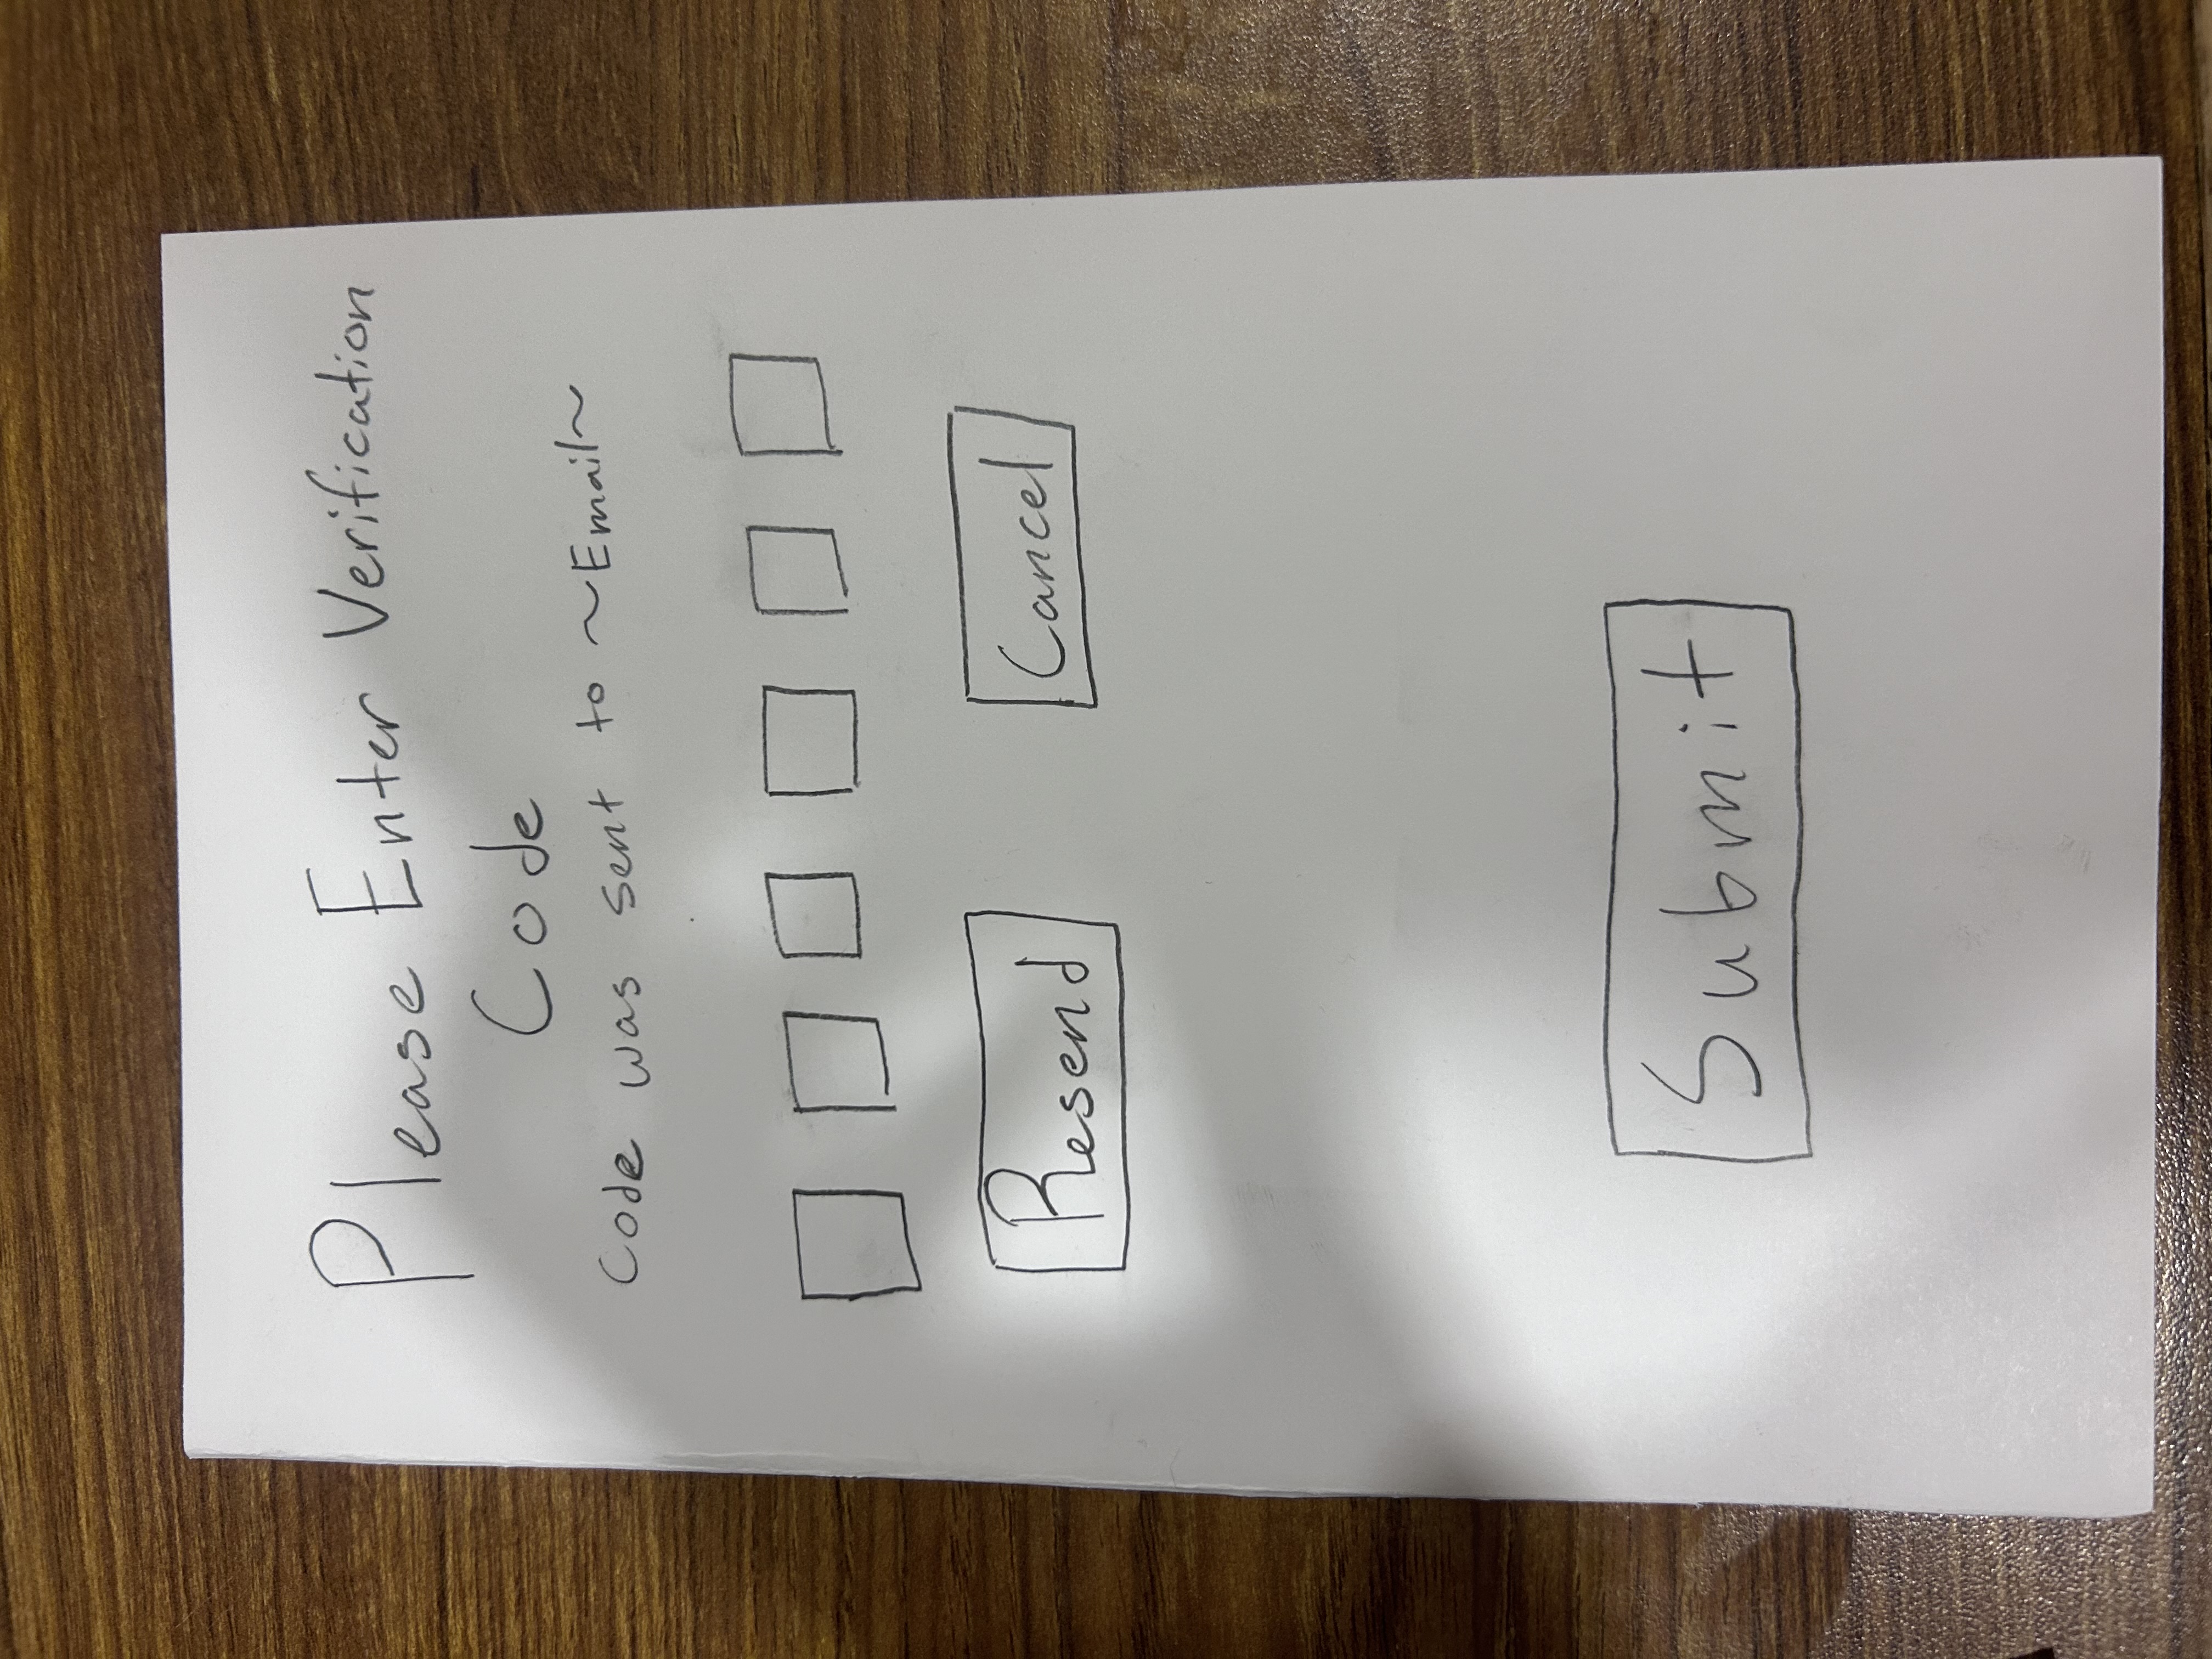 Please Enter Verification
Code
Code was sent to ~Email~
Resend Cancel
Submit